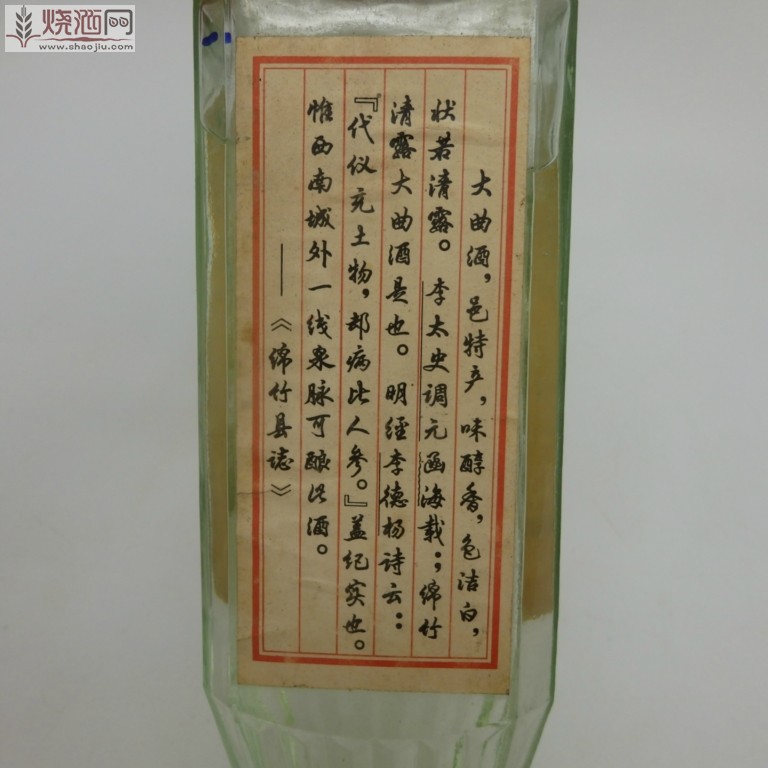 烧酒网
www.shaojiu.com
大曲酒，邑特产，味醇香，色洁白，
状若清露。李太史调元函海载：绵竹
清露大曲酒是也。明经李德杨诗云：
『代仪充土物，却病比人参。』盖纪实也。
惟西南城外一线泉脉可酿此酒。
——《绵竹县誌》